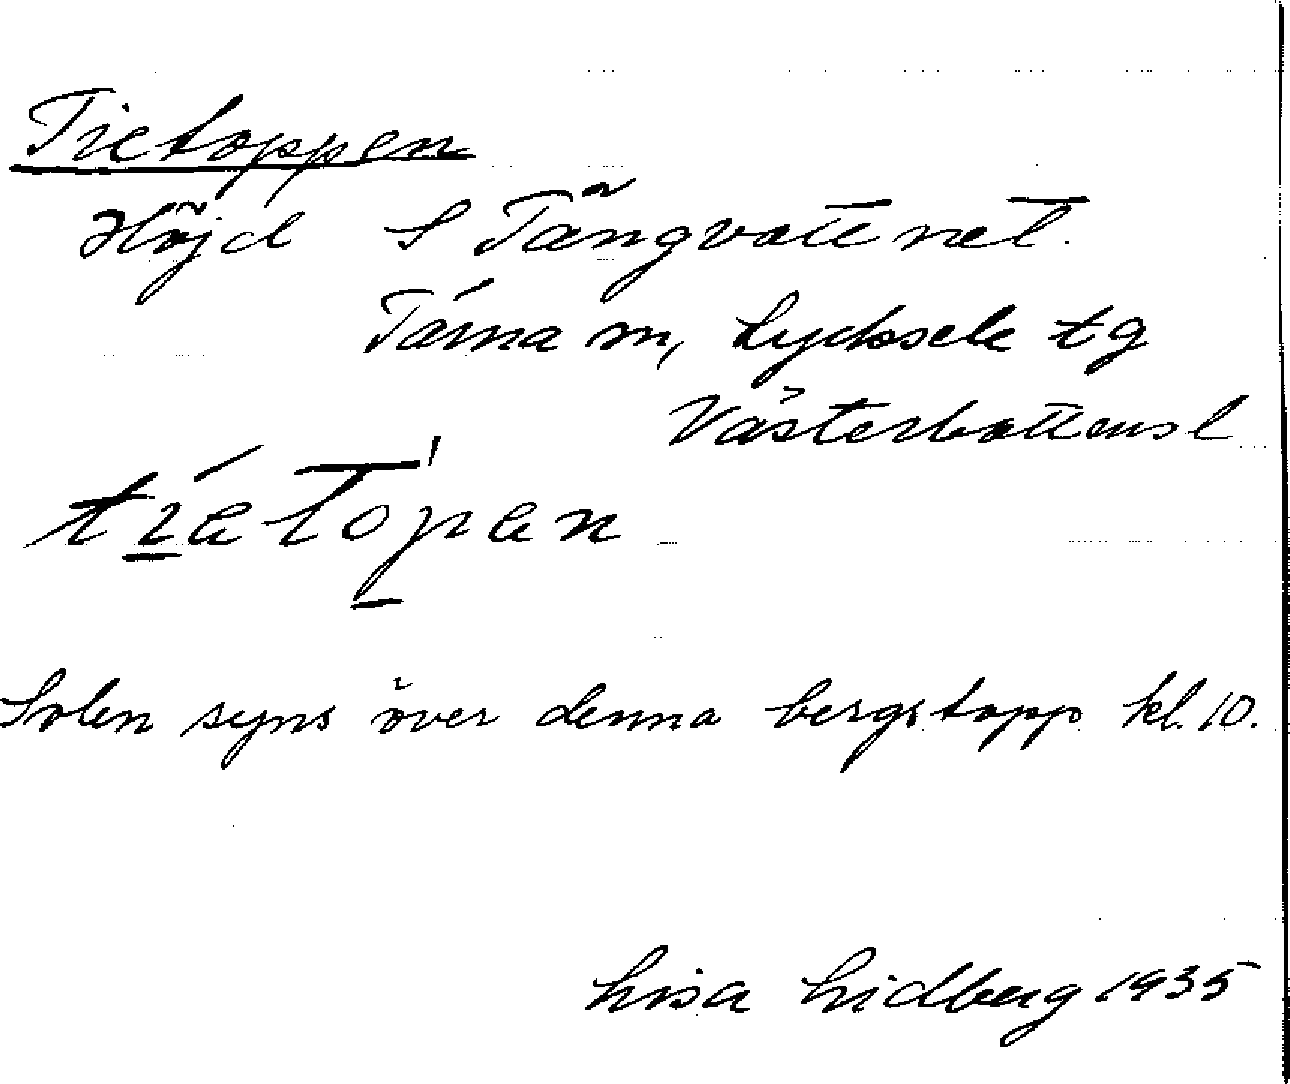 Tietoppen
Höjd S Tängvattnet.
Tärna sn, Lycksele tg
Västerbottens l
Solen syns över denna bergstopp kl. 10.
Lisa Lidberg 1935